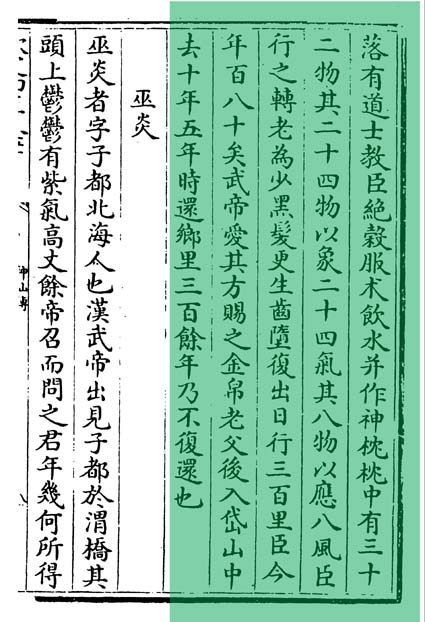 落有道士教臣絶榖服术飲水并作神枕枕中有三十
二物其二十四物以象二十四氣其八物以應八風臣
行之轉老為少黑髮更生齒墮復出日行三百里臣今
年百八十矣武帝愛其方賜之金帛老父後入岱山中
去十年五年時還鄉里三百餘年乃不復還也
巫炎
巫炎者字子都北海人也漢武帝出見子都於渭橋其
頭上鬱鬱有紫氣高丈餘帝召而問之君年幾何所得
神仙傳
八